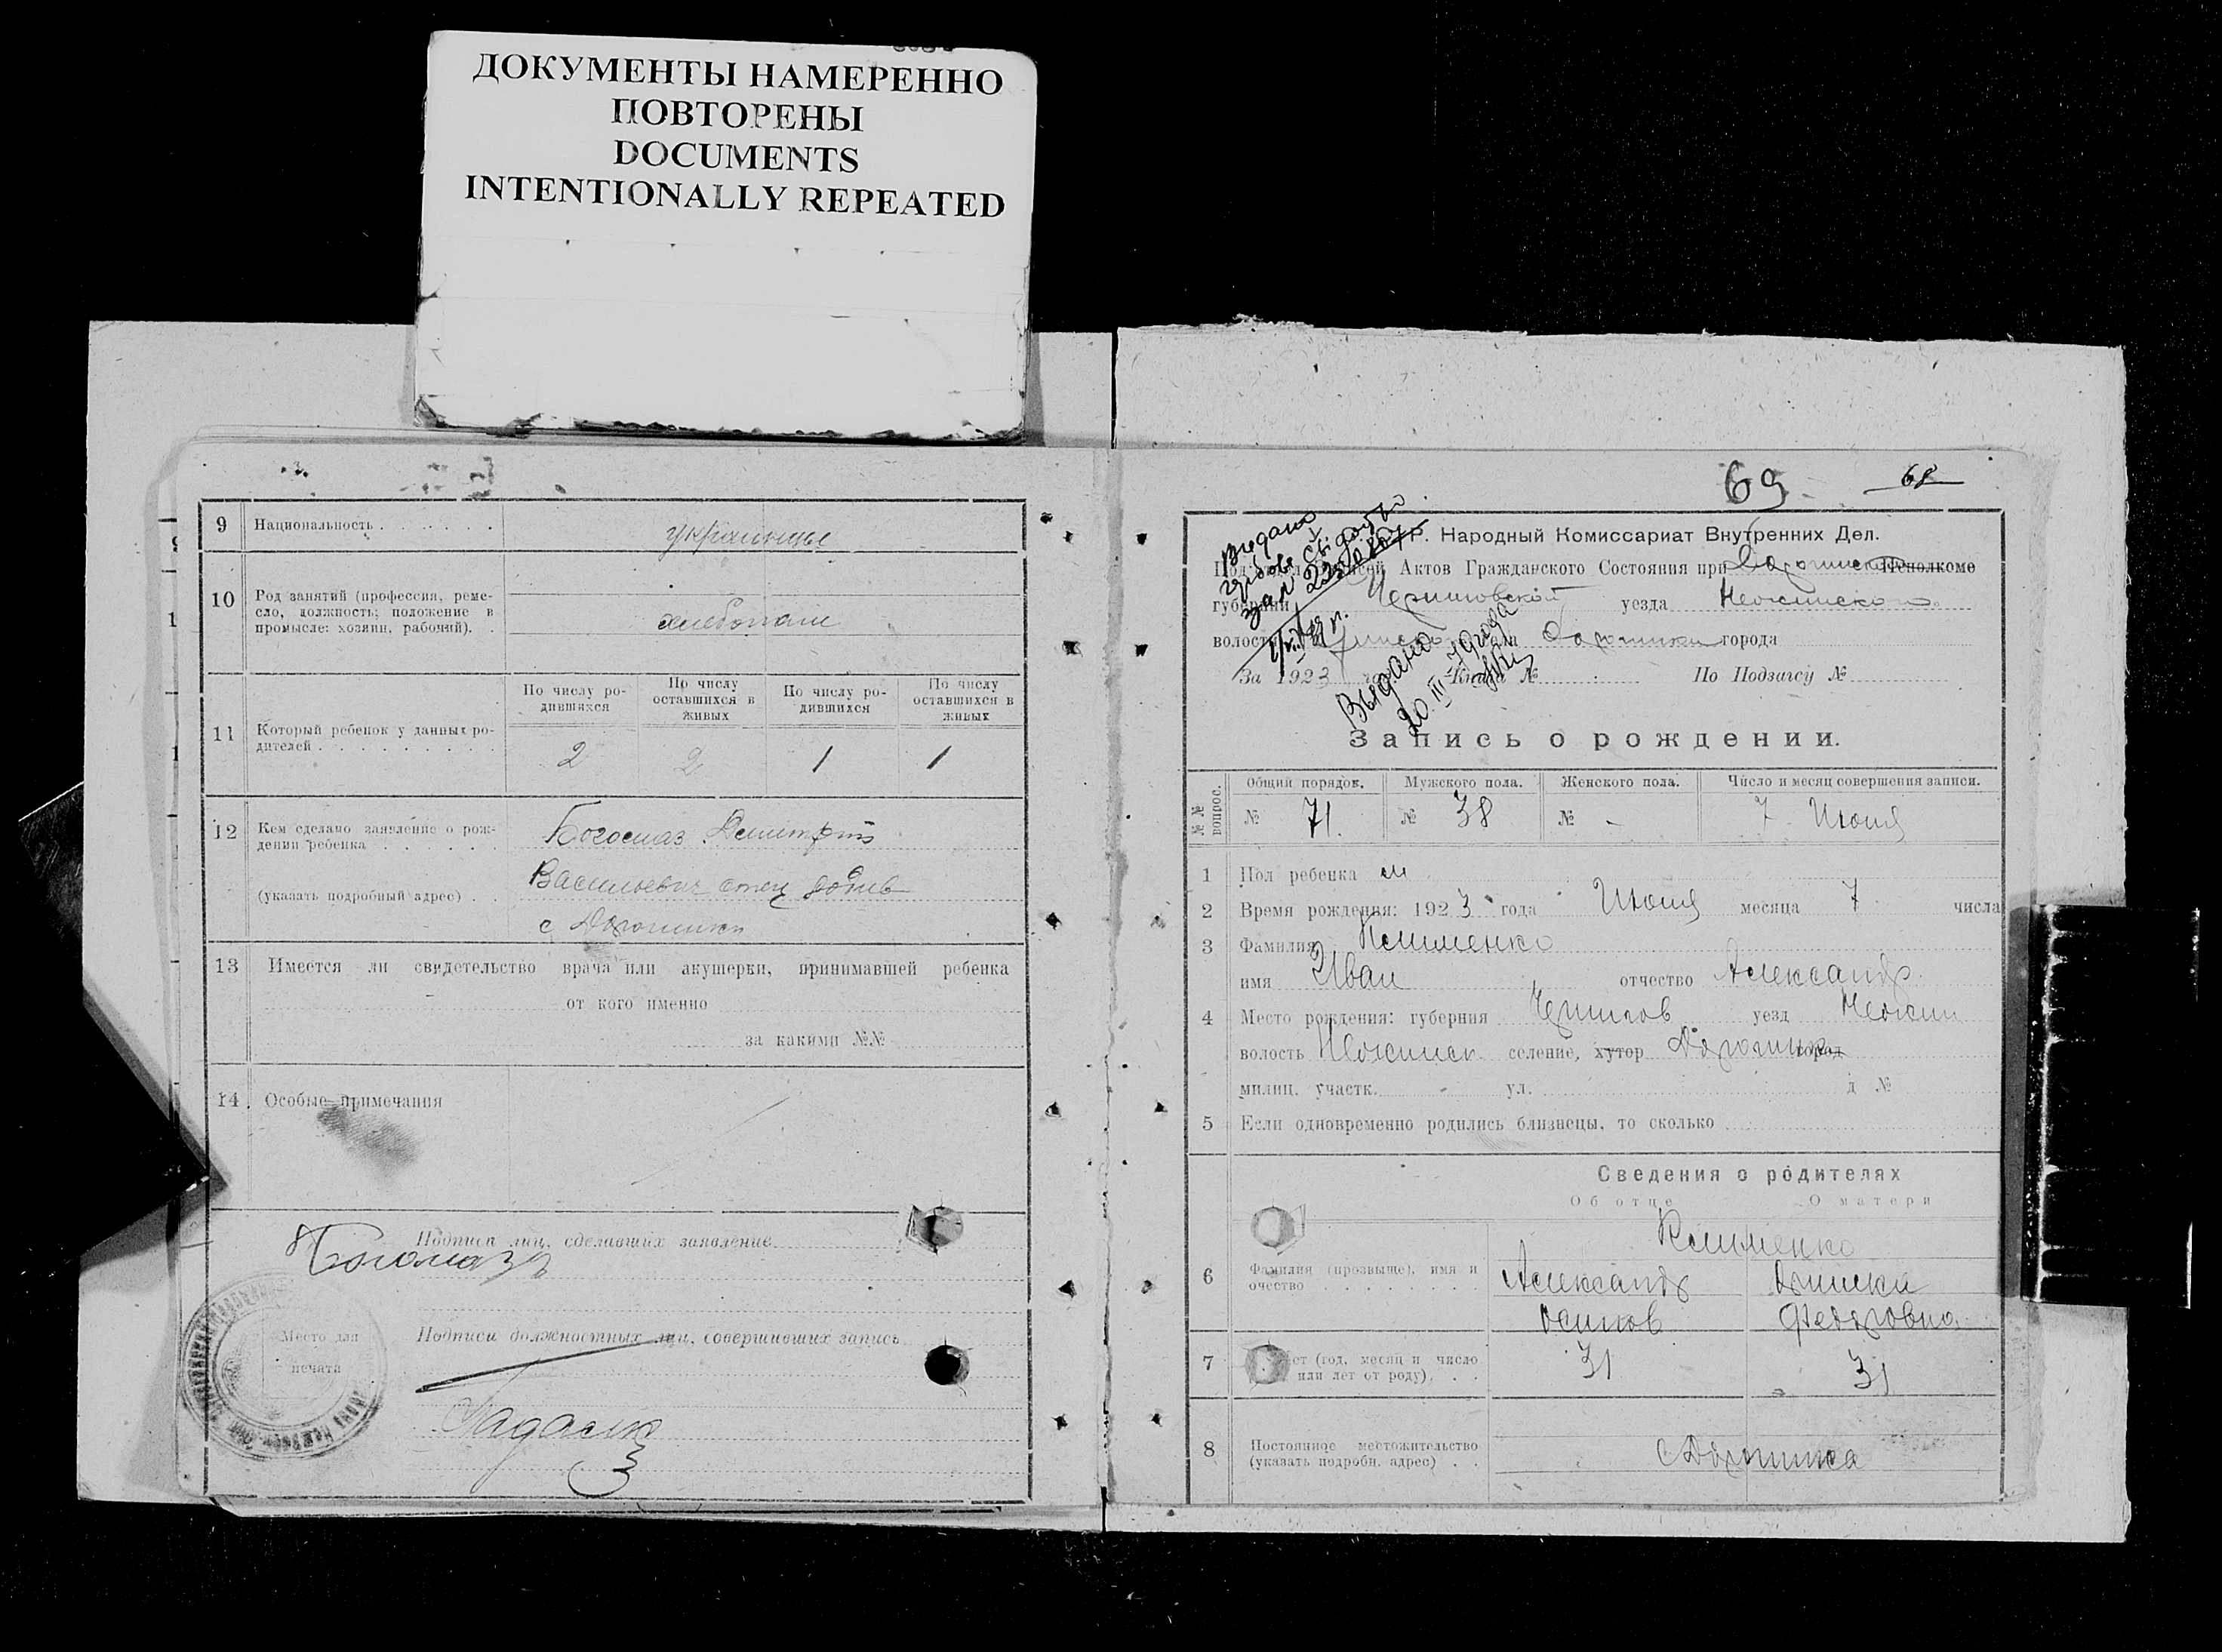 ДОКУМЕНТЫ НАМЕРЕННО
ПОВТОРЕНЫ
DOCUMENTS
INTENTIONALLY REPEATED
9 Национальность украинцы
10 Род занятий (профессия, реме-
сло, должность; положение в
промысле: хозяин, рабочий). хлебопаш
11 Который ребенок у данных ро-
дителей
По числу ро-
дившихся
По числу
оставшихся в
живых
По числу ро-
дившихся
По числу
оставшихся в
живых
2 2 1 1
12 Кем сделано заявление о рож-
дении ребенка Богомаз Дмитрий
Васильевич отец
(указать подробный адрес)
с Дорогинки
13 Имеется ли свидетельство врача или акушерки, принимавшей ребенка
от кого именно
за какими №№
14. Особые примечания
Подписи лиц, сделавших заявление
Богомаз
Подписи должностных лиц, совершивших запись
Место для
печати
69 68
Видано
20 III
Р. Народный Комиссариат Внутренних Дел.
Актов Гражданского Состояния при Исполкоме
губернии Черниговской уезда Нежинского
волости села Дорогинки города
За 1923 Книга № По Подзагсу №
Запись о рождении.
№№ вопрос.
Общий порядок. Мужского пола. Женского пола. Число и месяц совершения записи.
№ 71. № 38 № - 7 Июля
1 Пол ребенка м
2 Время рождения: 1923 года Июля месяца 7 числа
3 Фамилия Клименко
имя Иван отчество Александр.
4 Место рождения: губерния Чернигов уезд Нежин
волость Нежинск селение, хутор Дорогинка город
милиц. участк. ул. д №
5 Если одновременно родились близнецы, то сколько
Сведения о родителях
Об отце О матери
Клименко
6 Фамилия (прозвыще), имя и
очество
Александр
Осипов Федоровна
7 ет (год, месяц и число
или лет от роду) 31 31
8 Постоянное местожительство
(указать подробн. адрес) с Дорогинка